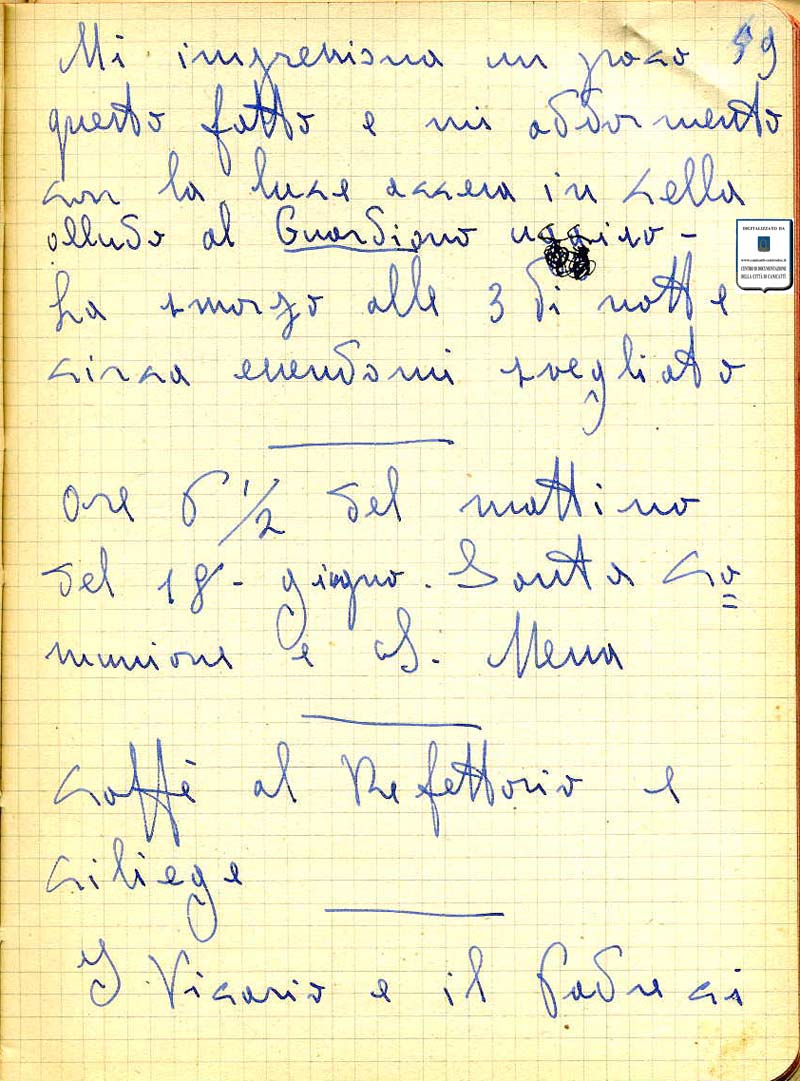 Mi impressiona un poco 59
questo fatto e mi addormento
con la luce accesa in cella
alludo al Guardiano ucciso -
La smorzo alle 3 di notte
circa essendomi svegliato
Ore 6 1/2 del mattino
del 18 - giugno. Santa Co
munione e S. Messa
Caffè al Refettorio e
ciliege
Il Vicario e il Padre ci
DIGITALIZZATO DA
CENTRO DI DOCUMENTAZIONE
DELLA CITTÀ DI CANICATTÌ